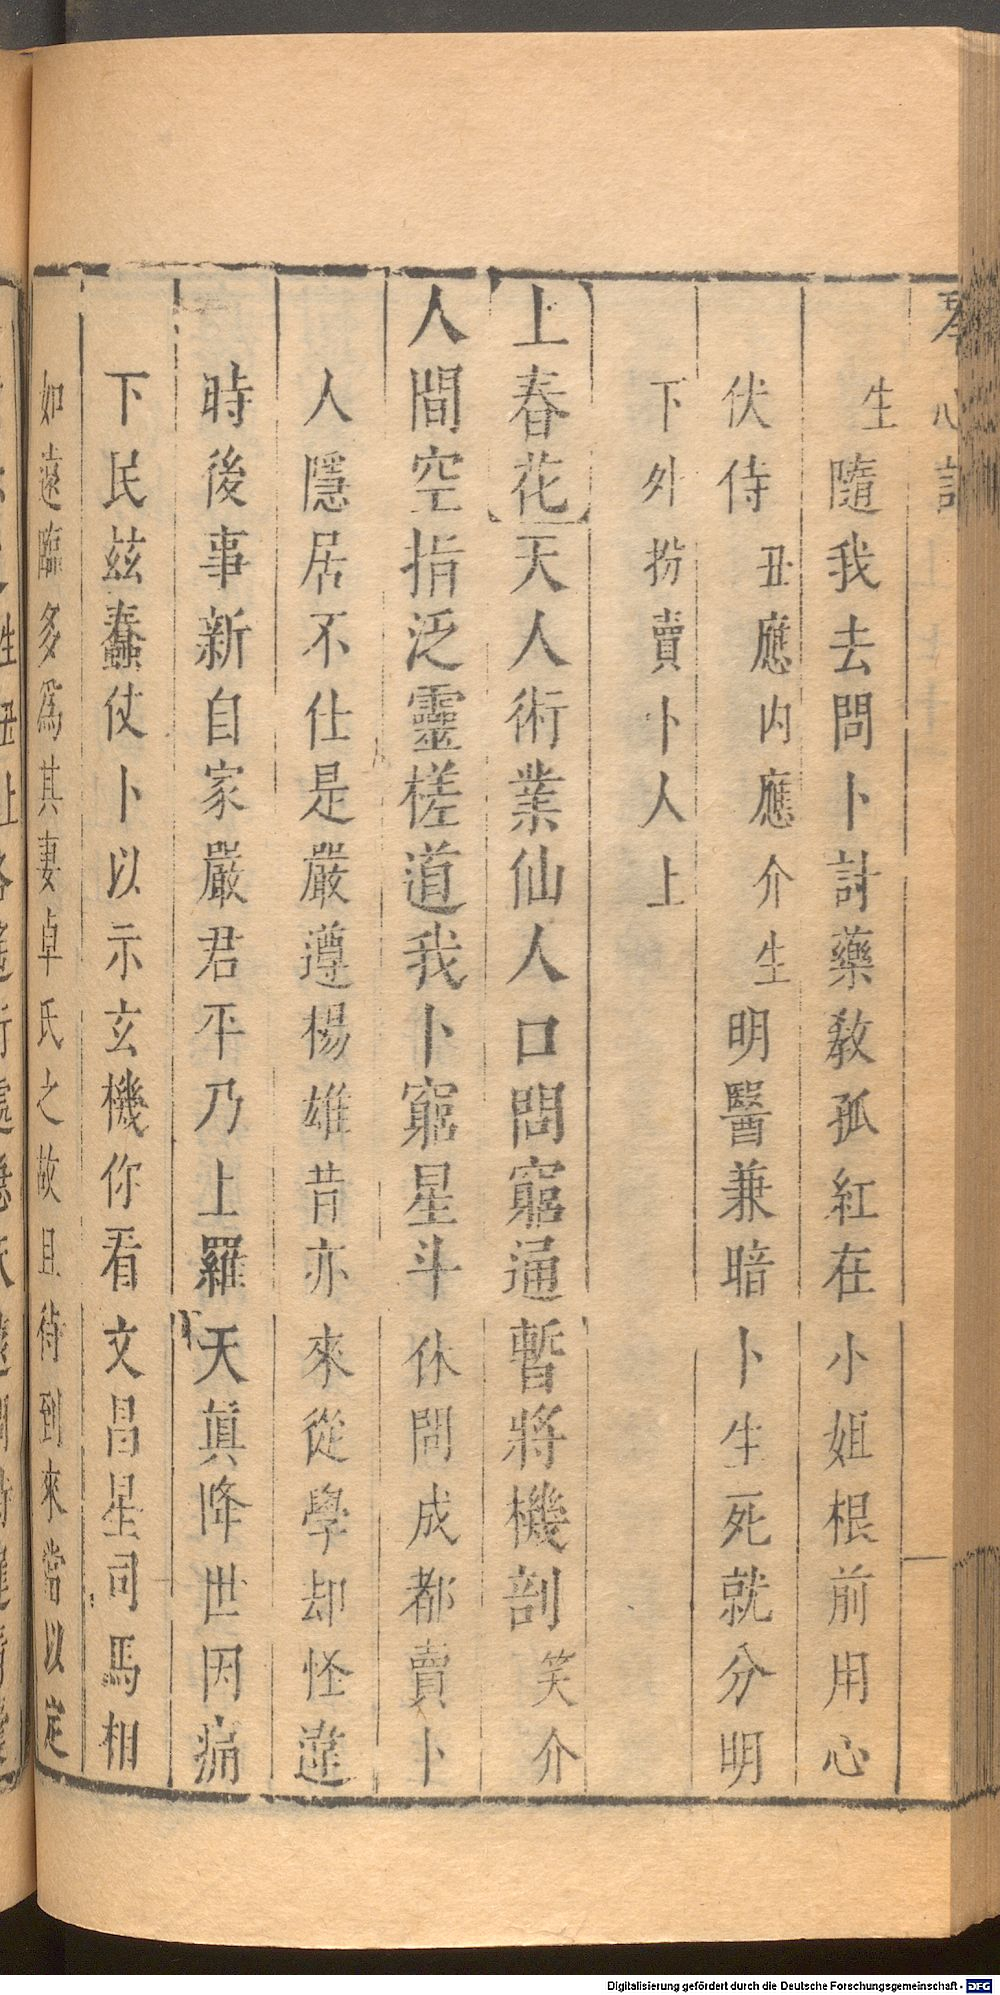 琴心記
生隨我去問卜討藥教孤紅在小姐根前用心
伏侍丑應內應介生明醫兼暗卜生死就分明
下外扮賣卜人上
上春花天人術業仙人口問窮通暫將機剖笑介
人間空指泛靈槎道我卜窮星斗休問成都賣卜
人隱居不仕是嚴遵楊雄昔亦來從學却怪違
時後事新自家嚴君平乃上羅天真降世因痛
下民兹蠢仗卜以示玄機你看文昌星司馬相
如遠臨多爲其妻卓氏之故且待到來當以定
Digitalisierung gefördert durch die Deutsche Forschungsgemeinschaft - DFG